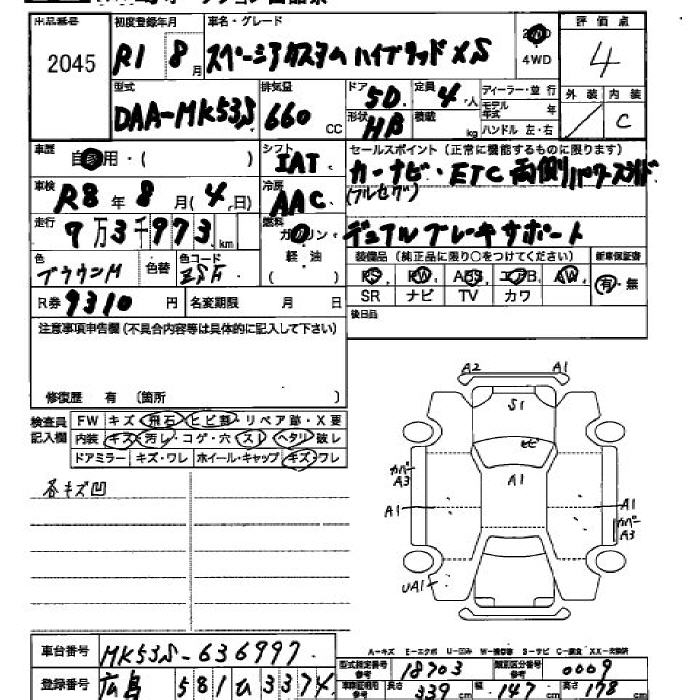 出品番号 初度登録年月 車名・グレード 評価点
2045 R1 8月 スペーシアカスタム ハイブリッド XS 4WD 4
型式 排気量 ドア 定員 ディーラー・並行 外装 内装
DAA-MK53S 660 CC 5D 4人 モデル年式 年 C
形状 HB 積載 kg ハンドル 左・右
車歴 自家用・( ) シフト IAT セールスポイント(正常に機能するものに限ります)
車検 R8年8月(4日) 冷房 AAC カーナビ・ETC 両側パワースライド
(フルセグ)
走行 9万3千973km 燃料 ガソリン・軽油 ( ) デュアルブレーキサポート
色 ブラウンM 色替 色コード 装備品(純正品に限り○をつけてください) 新車保証書
PS PW ABS エアB AW 有・無
R券 9310円 名変期限 月 日 SR ナビ TV カワ
注意事項申告欄(不具合内容等は具体的に記入して下さい) 後日品
修復歴 有 (箇所 )
検査員記入欄 FW キズ・飛石・ヒビ割・リペア跡・X要
内装 キズ・汚レ・コゲ・穴・スレ・ヘタリ・破レ
ドアミラー キズ・ワレ ホイール・キャップ キズ・ワレ
各キズ凹
A2 A1
S1
ヒビ
カバー A3 A1
A1 A1
カバー A3
UA1
車台番号 MK53S-636997
A-キズ E-エクボ U-凹み W-補修跡 S-サビ C-腐食 XX-交換済
型式指定番号 参考 18703 類別区分番号 参考 0009
登録番号 広島 581 ひ 3374 車検証明用 参考 長さ 339cm 幅 147cm 高さ 178cm